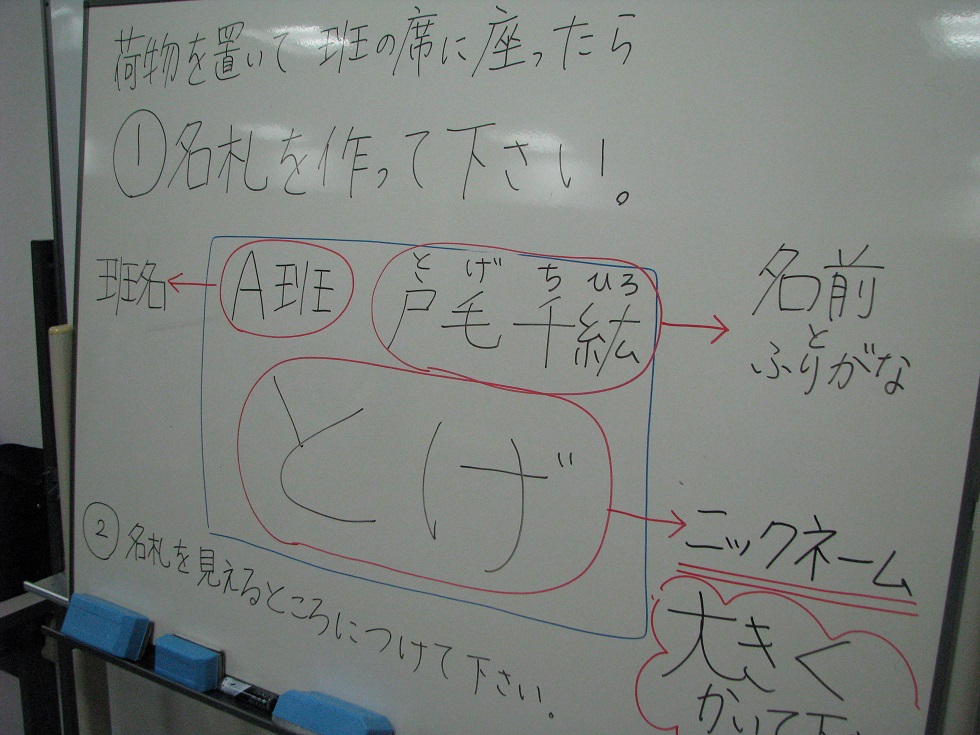 荷物を置いて班の席に座ったら
①名札を作って下さい!。
班名
A班
と げ ち ひろ
戸毛 千紘
名前
と
ふりがな
とげ
ニックネーム
大きく
かいて下
②名札を見えるところにつけて下さい。